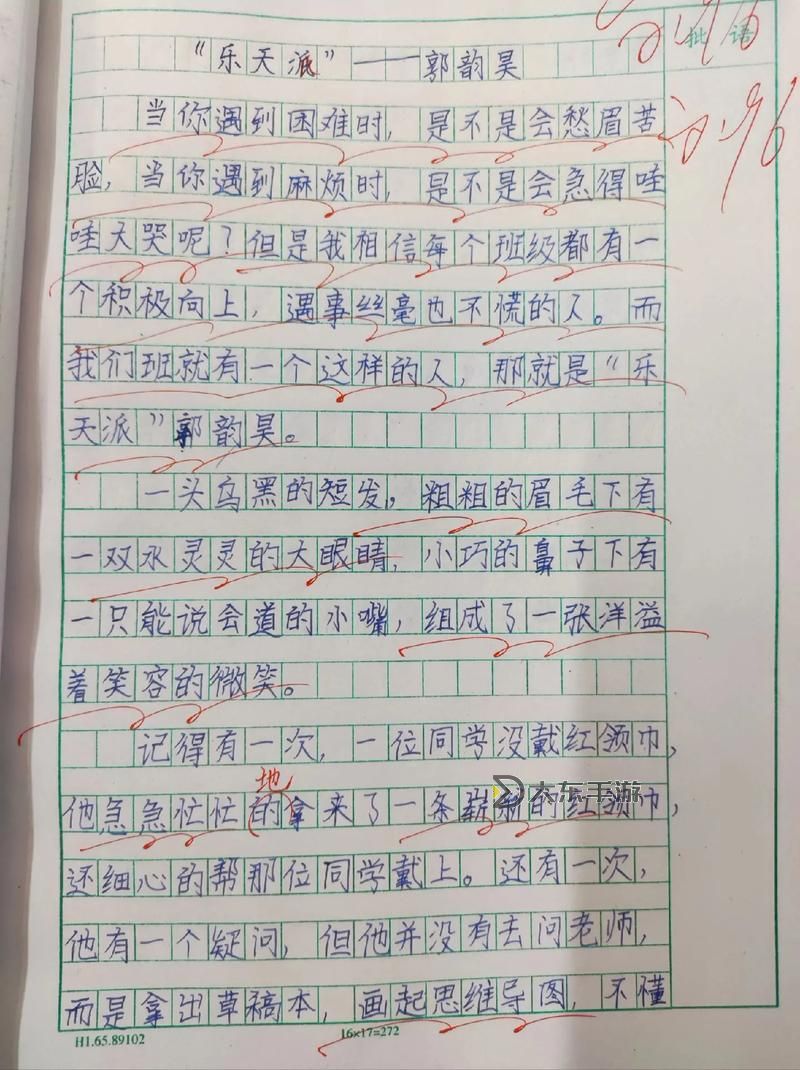 批语
“乐天派”——郭韵昊
当你遇到困难时，是不是会愁眉苦
96
脸，当你遇到麻烦时，是不是会急得哇
哇大哭呢？但是我相信每个班级都有一
个积极向上，遇事丝毫也不慌的人。而
我们班就有一个这样的人，那就是“乐
天派”郭韵昊。
一头乌黑的短发，粗粗的眉毛下有
一双水灵灵的大眼睛，小巧的鼻子下有
一只能说会道的小嘴，组成了一张洋溢
着笑容的微笑。
记得有一次，一位同学没戴红领巾，
地
他急急忙忙(的)拿来了一条崭新的红领巾，
大东手游
还细心的帮那位同学戴上。还有一次，
他有一个疑问，但他并没有去问老师，
而是拿出草稿本，画起思维导图，不懂
H1.65.89102
16×17=272